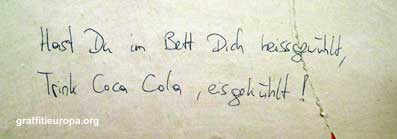 Hast Du im Bett Dich heissgewühlt,
Trink Coca Cola, eisgekühlt!
graffitieuropa.org